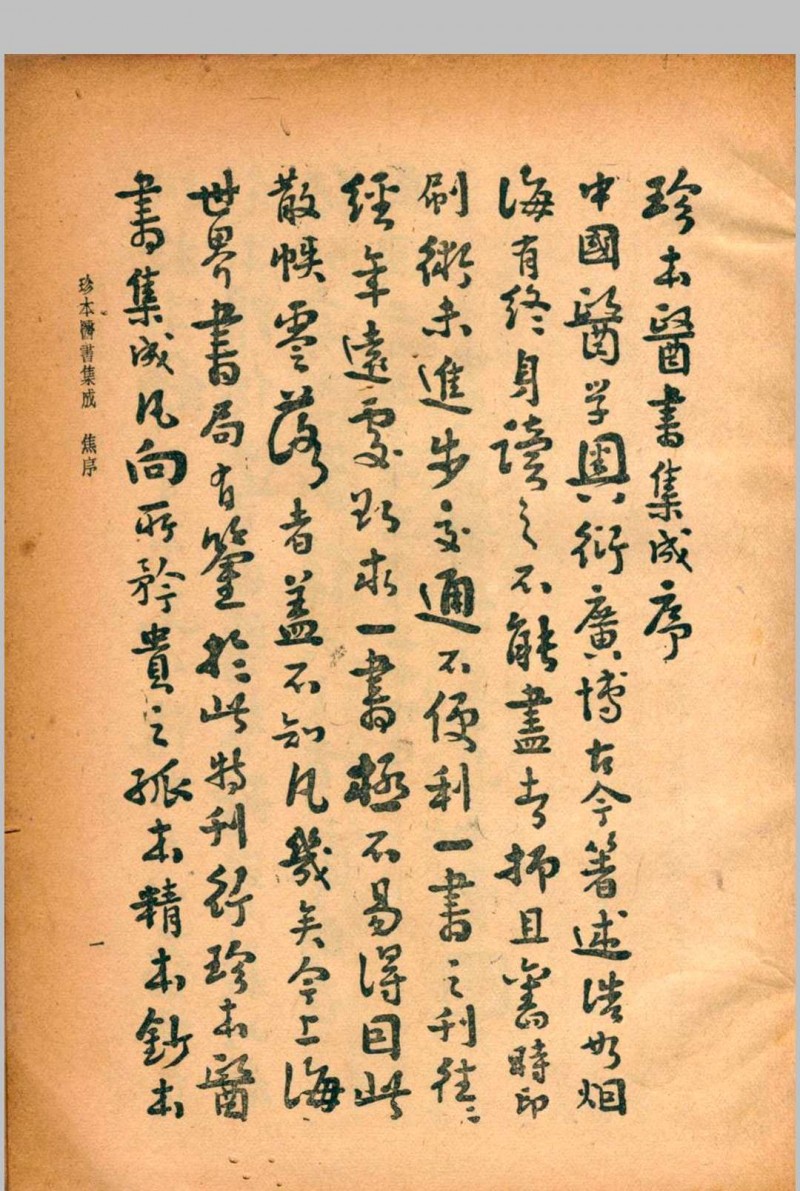 珍本醫書集成序
中國醫学輿衍廣博古今著述浩如烟
海有終身讀之不能盡者抑且舊時印
刷術未進步交通不便利一書之刊往〻
經年遠處欲求一書極不易得因此
散帙零落者蓋不知凡幾矣今上海
世界書局有鑒於此特刊行珍本醫
書集成凡向所矜貴之孤本精本鈔本
珍本醫書集成　焦序
一